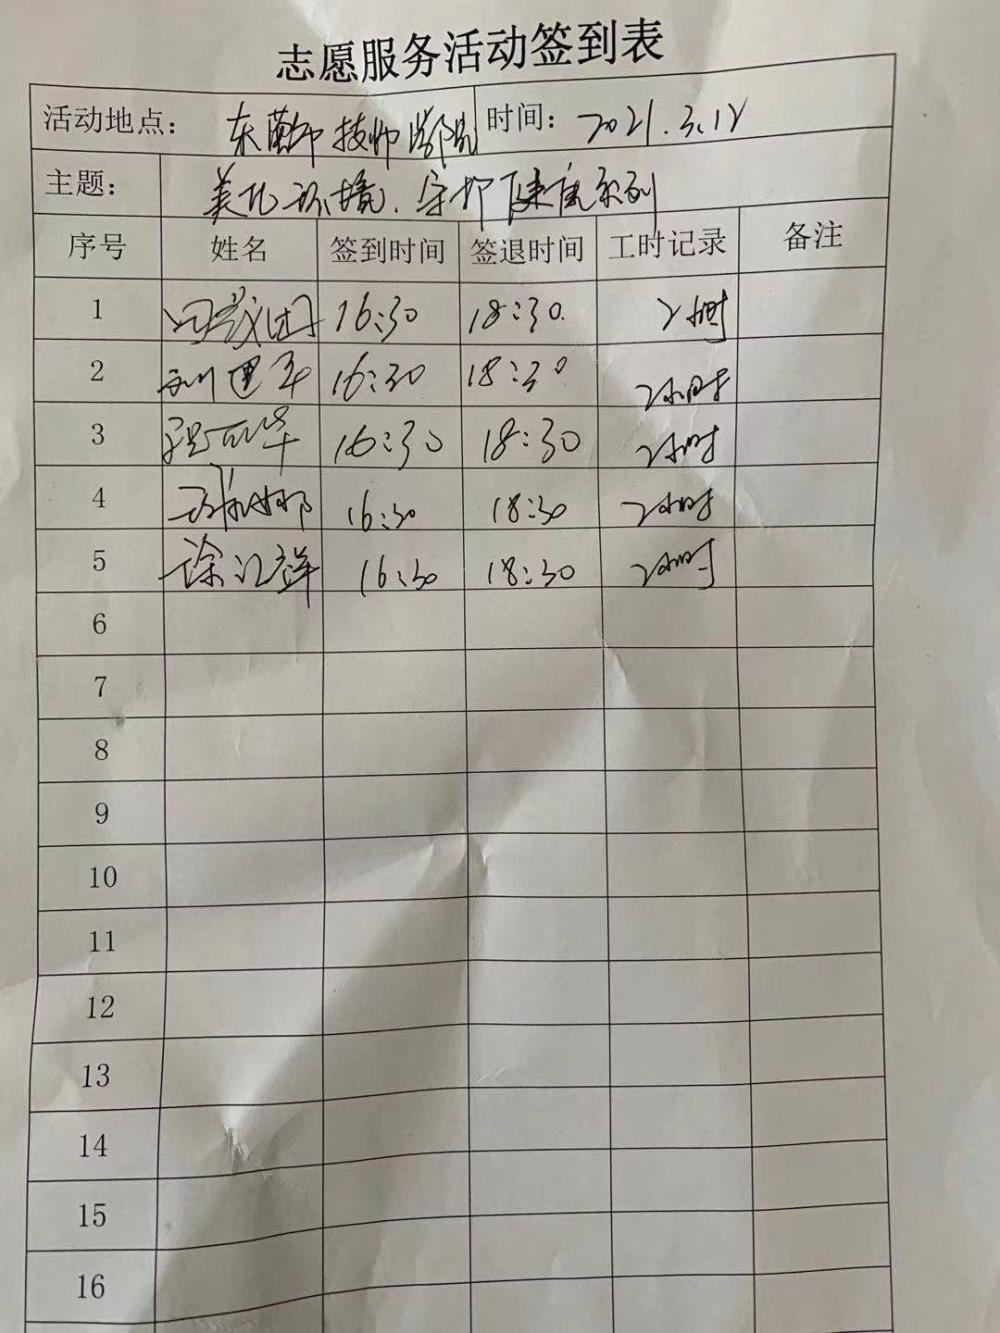 志愿服务活动签到表
活动地点： 技师学院 时间： 2021.3.12
主题： 美化环境、守护健康系列
序号 姓名 签到时间 签退时间 工时记录 备注
1 16:30 18:30. 2小时
2 16:30 18:30 2小时
3 16:30 18:30 2小时
4 16:30 18:30 2小时
5 16:30 18:30 2小时
6
7
8
9
10
11
12
13
14
15
16